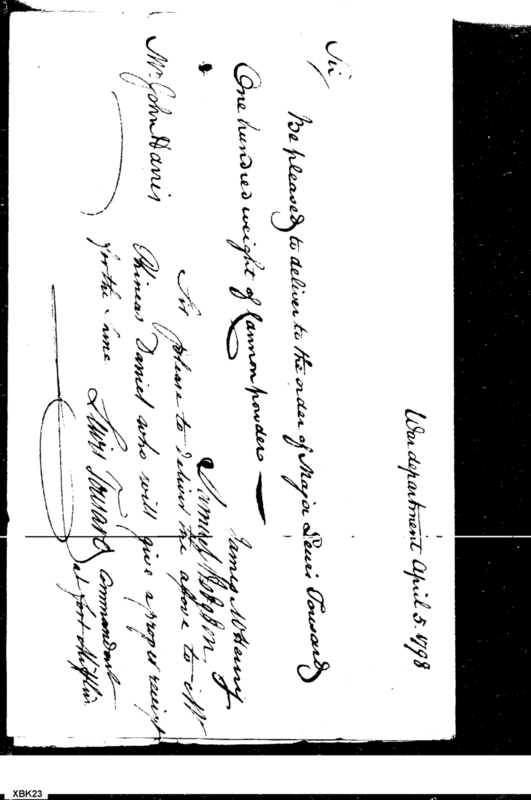 War department April 5. 1798
Sir
Be pleased to deliver to the order of Major Lewis Tousard
One hundred weight of Cannon powder
James McHenry
Samuel Hodgdon
Mr. John Harris
Sir please to deliver the above to Mr
Phineas Daniel who will give a proper receipt
for the same Lewis Tousard Commandant
at fort Mifflin
XBK23